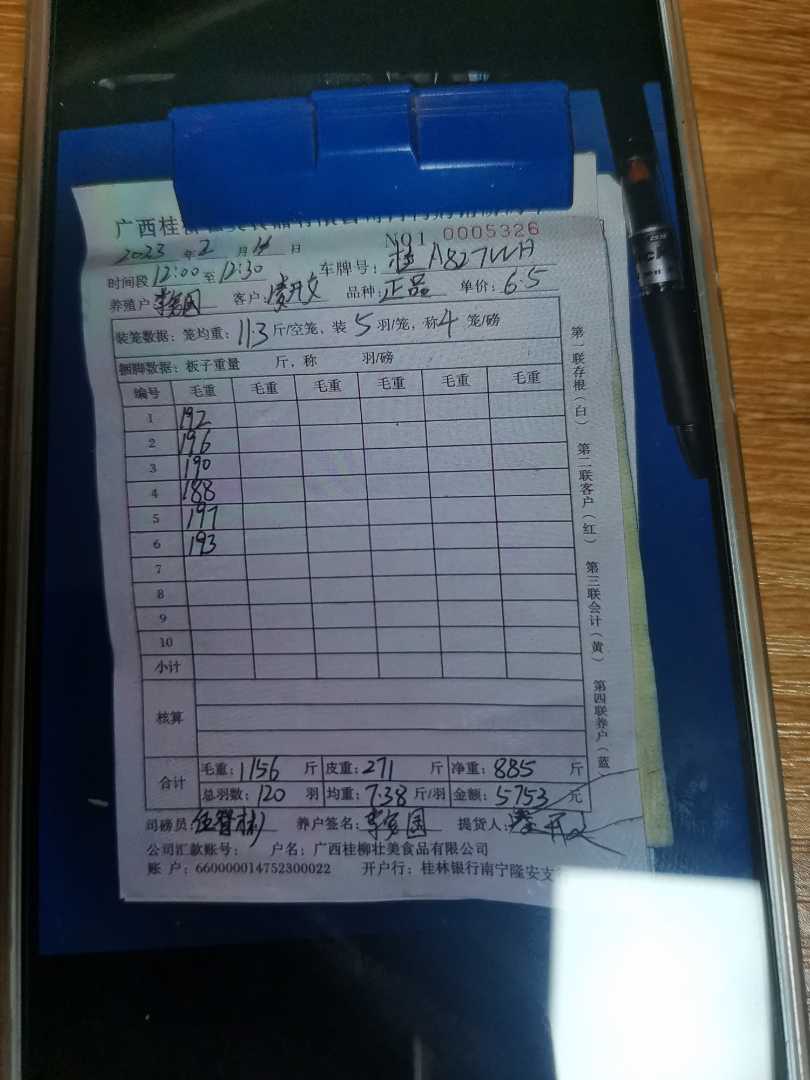 广西桂
NO1 0005326
2023 年 2 月 日
时间段 12:00 至 12:30 车牌号: 桂A827WH
养殖户 李 国 客户: 凌开文 品种: 正品 单价: 6.5
装笼数据: 笼均重: 11.3 斤/空笼, 装 5 羽/笼, 称 4 笼/磅
捆脚数据: 板子重量 斤, 称 羽/磅
编号 毛重 毛重 毛重 毛重 毛重 毛重
1 192
2 196
3 190
4 188
5 197
6 193
7
8
9
10
小计
核算
合计 毛重: 1156 斤 皮重: 271 斤 净重: 885 斤
总羽数: 120 羽 均重: 7.38 斤/羽 金额: 5753 元
司磅员: 养户签名: 李 国 提货人: 凌开文
公司汇款账号: 户名: 广西桂柳壮美食品有限公司
账 户: 660000014752300022 开户行: 桂林银行南宁隆安支
第一联存根(白) 第二联客户(红) 第三联会计(黄) 第四联养户(蓝)